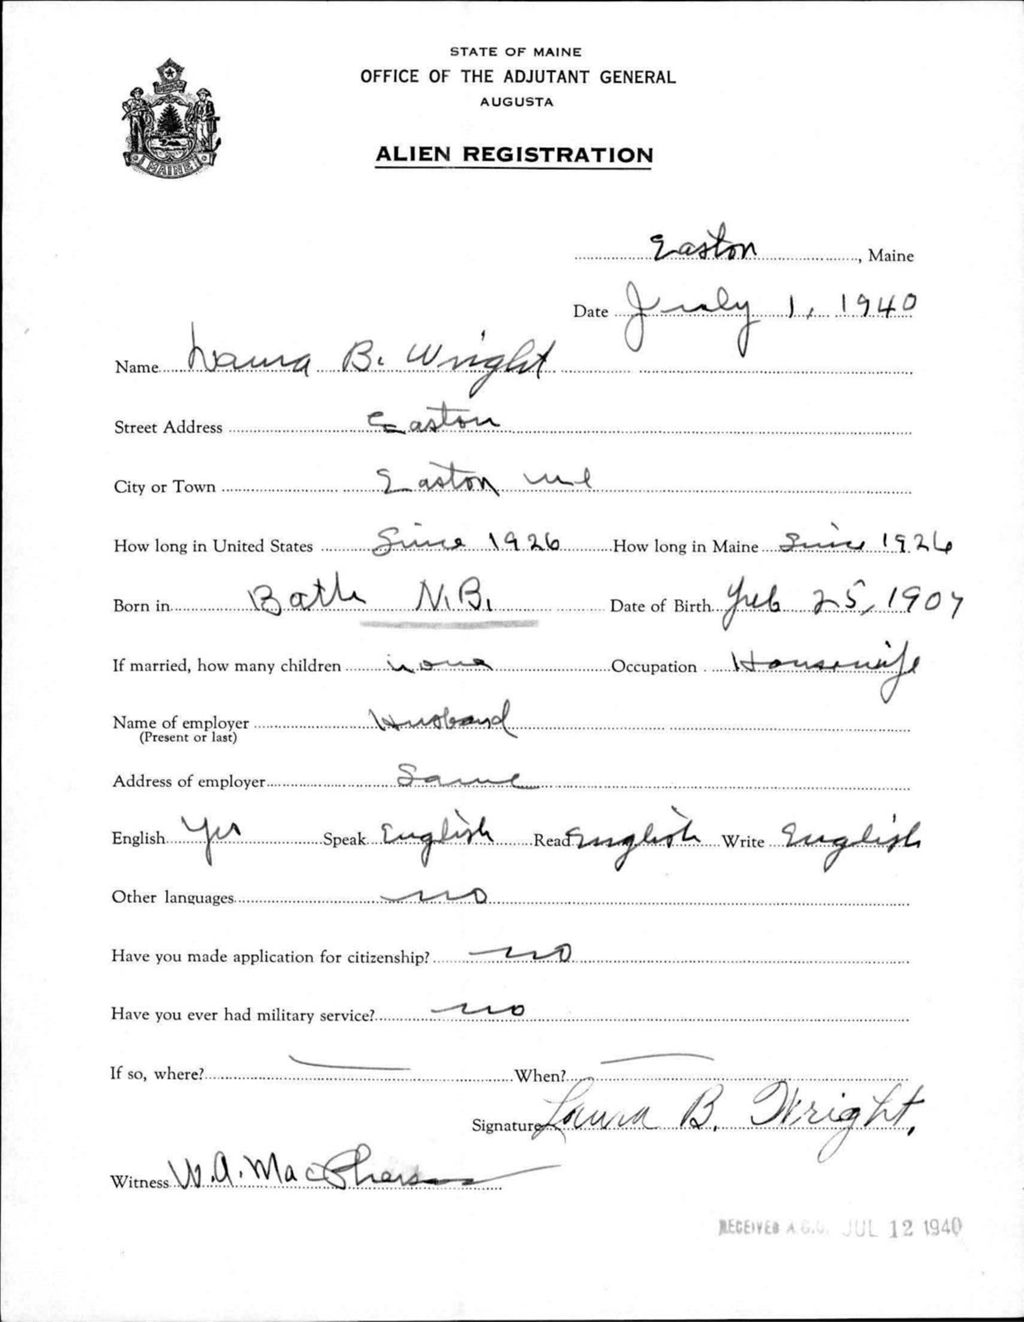 STATE OF MAINE
OFFICE OF THE ADJUTANT GENERAL
AUGUSTA
ALIEN REGISTRATION
MAINE
Easton, Maine
Date July 1, 1940
Name Laura B. Wright
Street Address Easton
City or Town Easton Me
How long in United States Since 1926 How long in Maine Since 1926
Born in Bath N.B. Date of Birth Feb 25, 1907
If married, how many children none Occupation Housewife
Name of employer Husband
(Present or last)
Address of employer Same
English Yes Speak English Read English Write English
Other languages no
Have you made application for citizenship? no
Have you ever had military service? no
If so, where? When?
Signature Laura B. Wright.
Witness W.A. MacPherson
RECEIVED A.G.O. JUL 12 1940